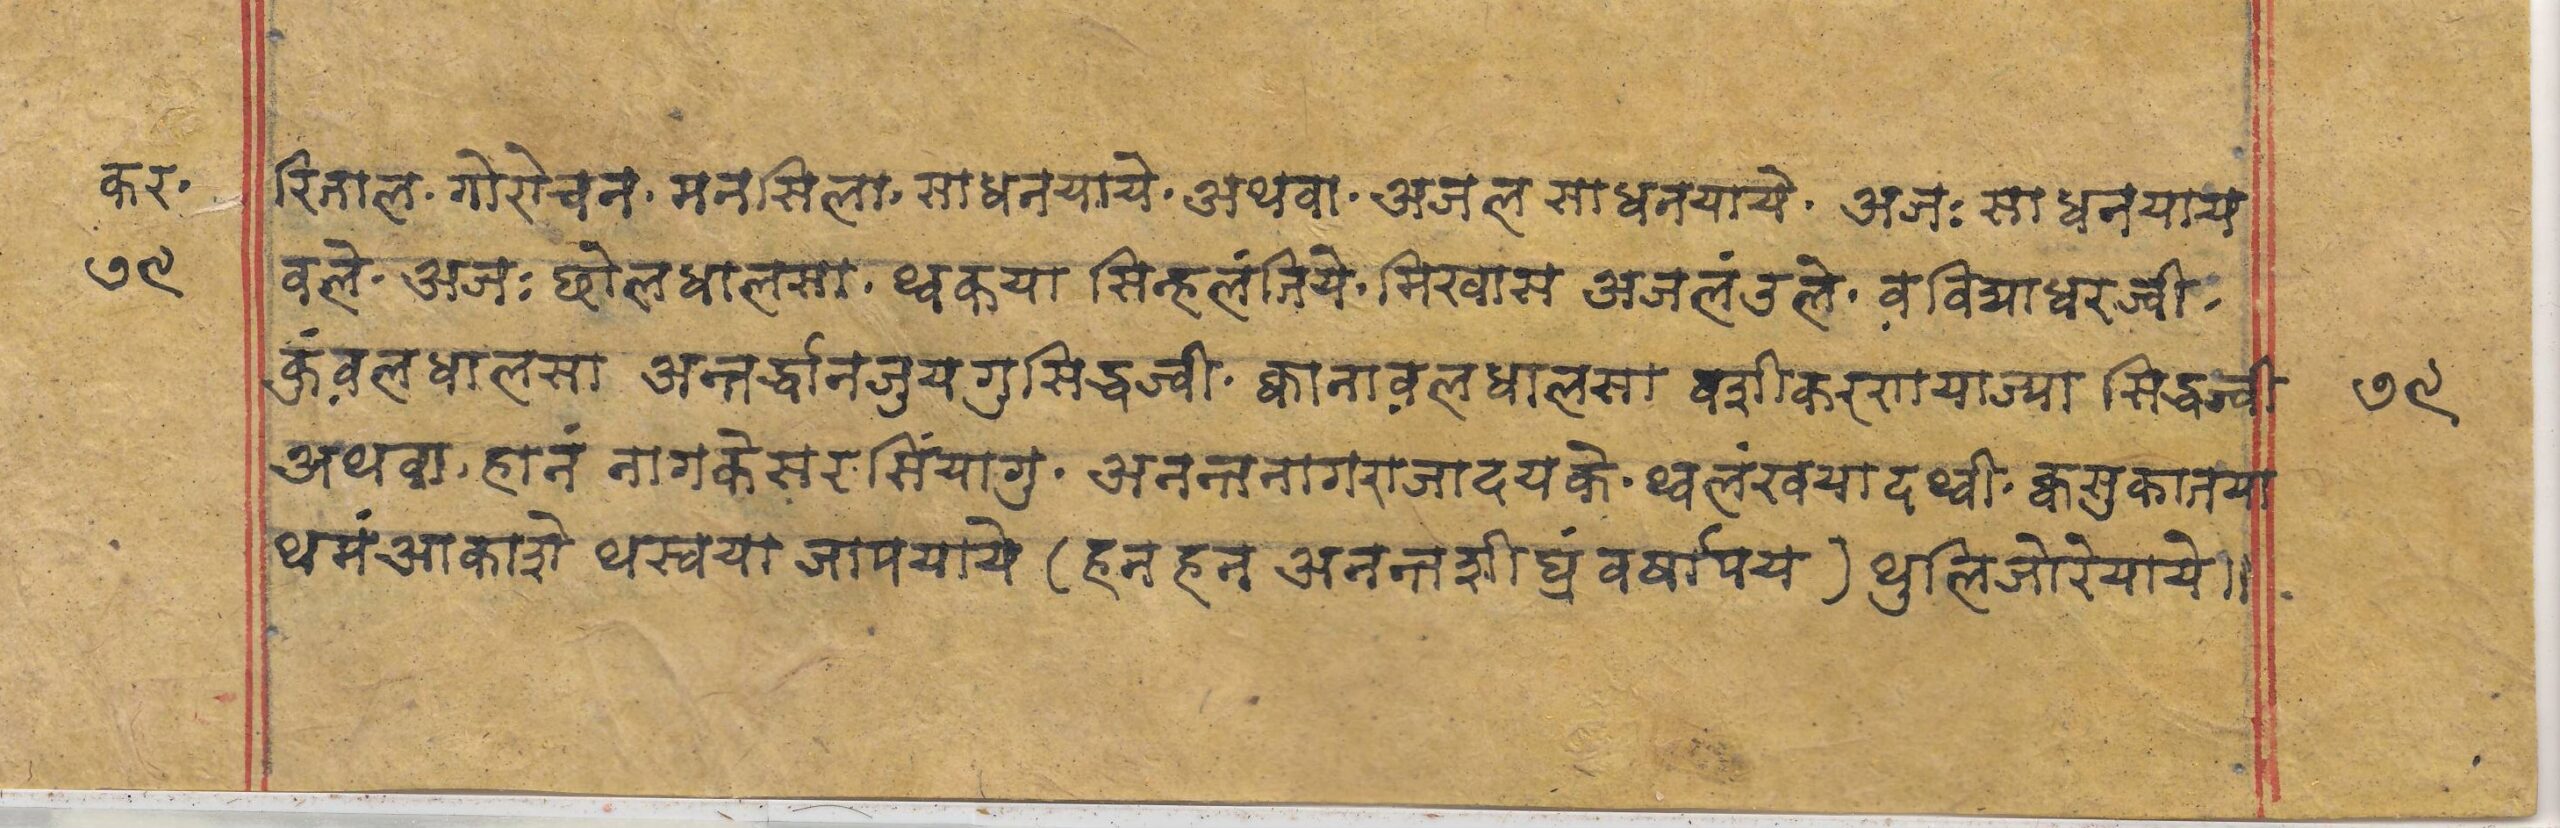 कर॰ रिताल॰ गोरोचन॰ मनसिला॰ साधनयाये॰ अथवा॰ अजल साधनयाये॰ अजः साधनयाय
७९ वले॰ अजः छोलधालसा॰ थ्वकया सिन्हलंतिये॰ मिखास अजलंउले॰ व़विद्याधरज्वी॰
कुंव़लधालसा अन्तर्द्धानजुयगुसिद्धज्वी॰ क्वानाव़लधालसा वशीकरणयाज्या सिद्धज्वी ७९
अथवा॰ हानं नागकेसर सिंयागु॰ अनन्तनागराजादयके॰ थ्वलंखयादथ्वी॰ क्वसुकातया
थमंआकाशे थस्वया जापयाये (हन हन अनन्तशीघ्रं वर्षापय) थुलिजोरेयाये॥